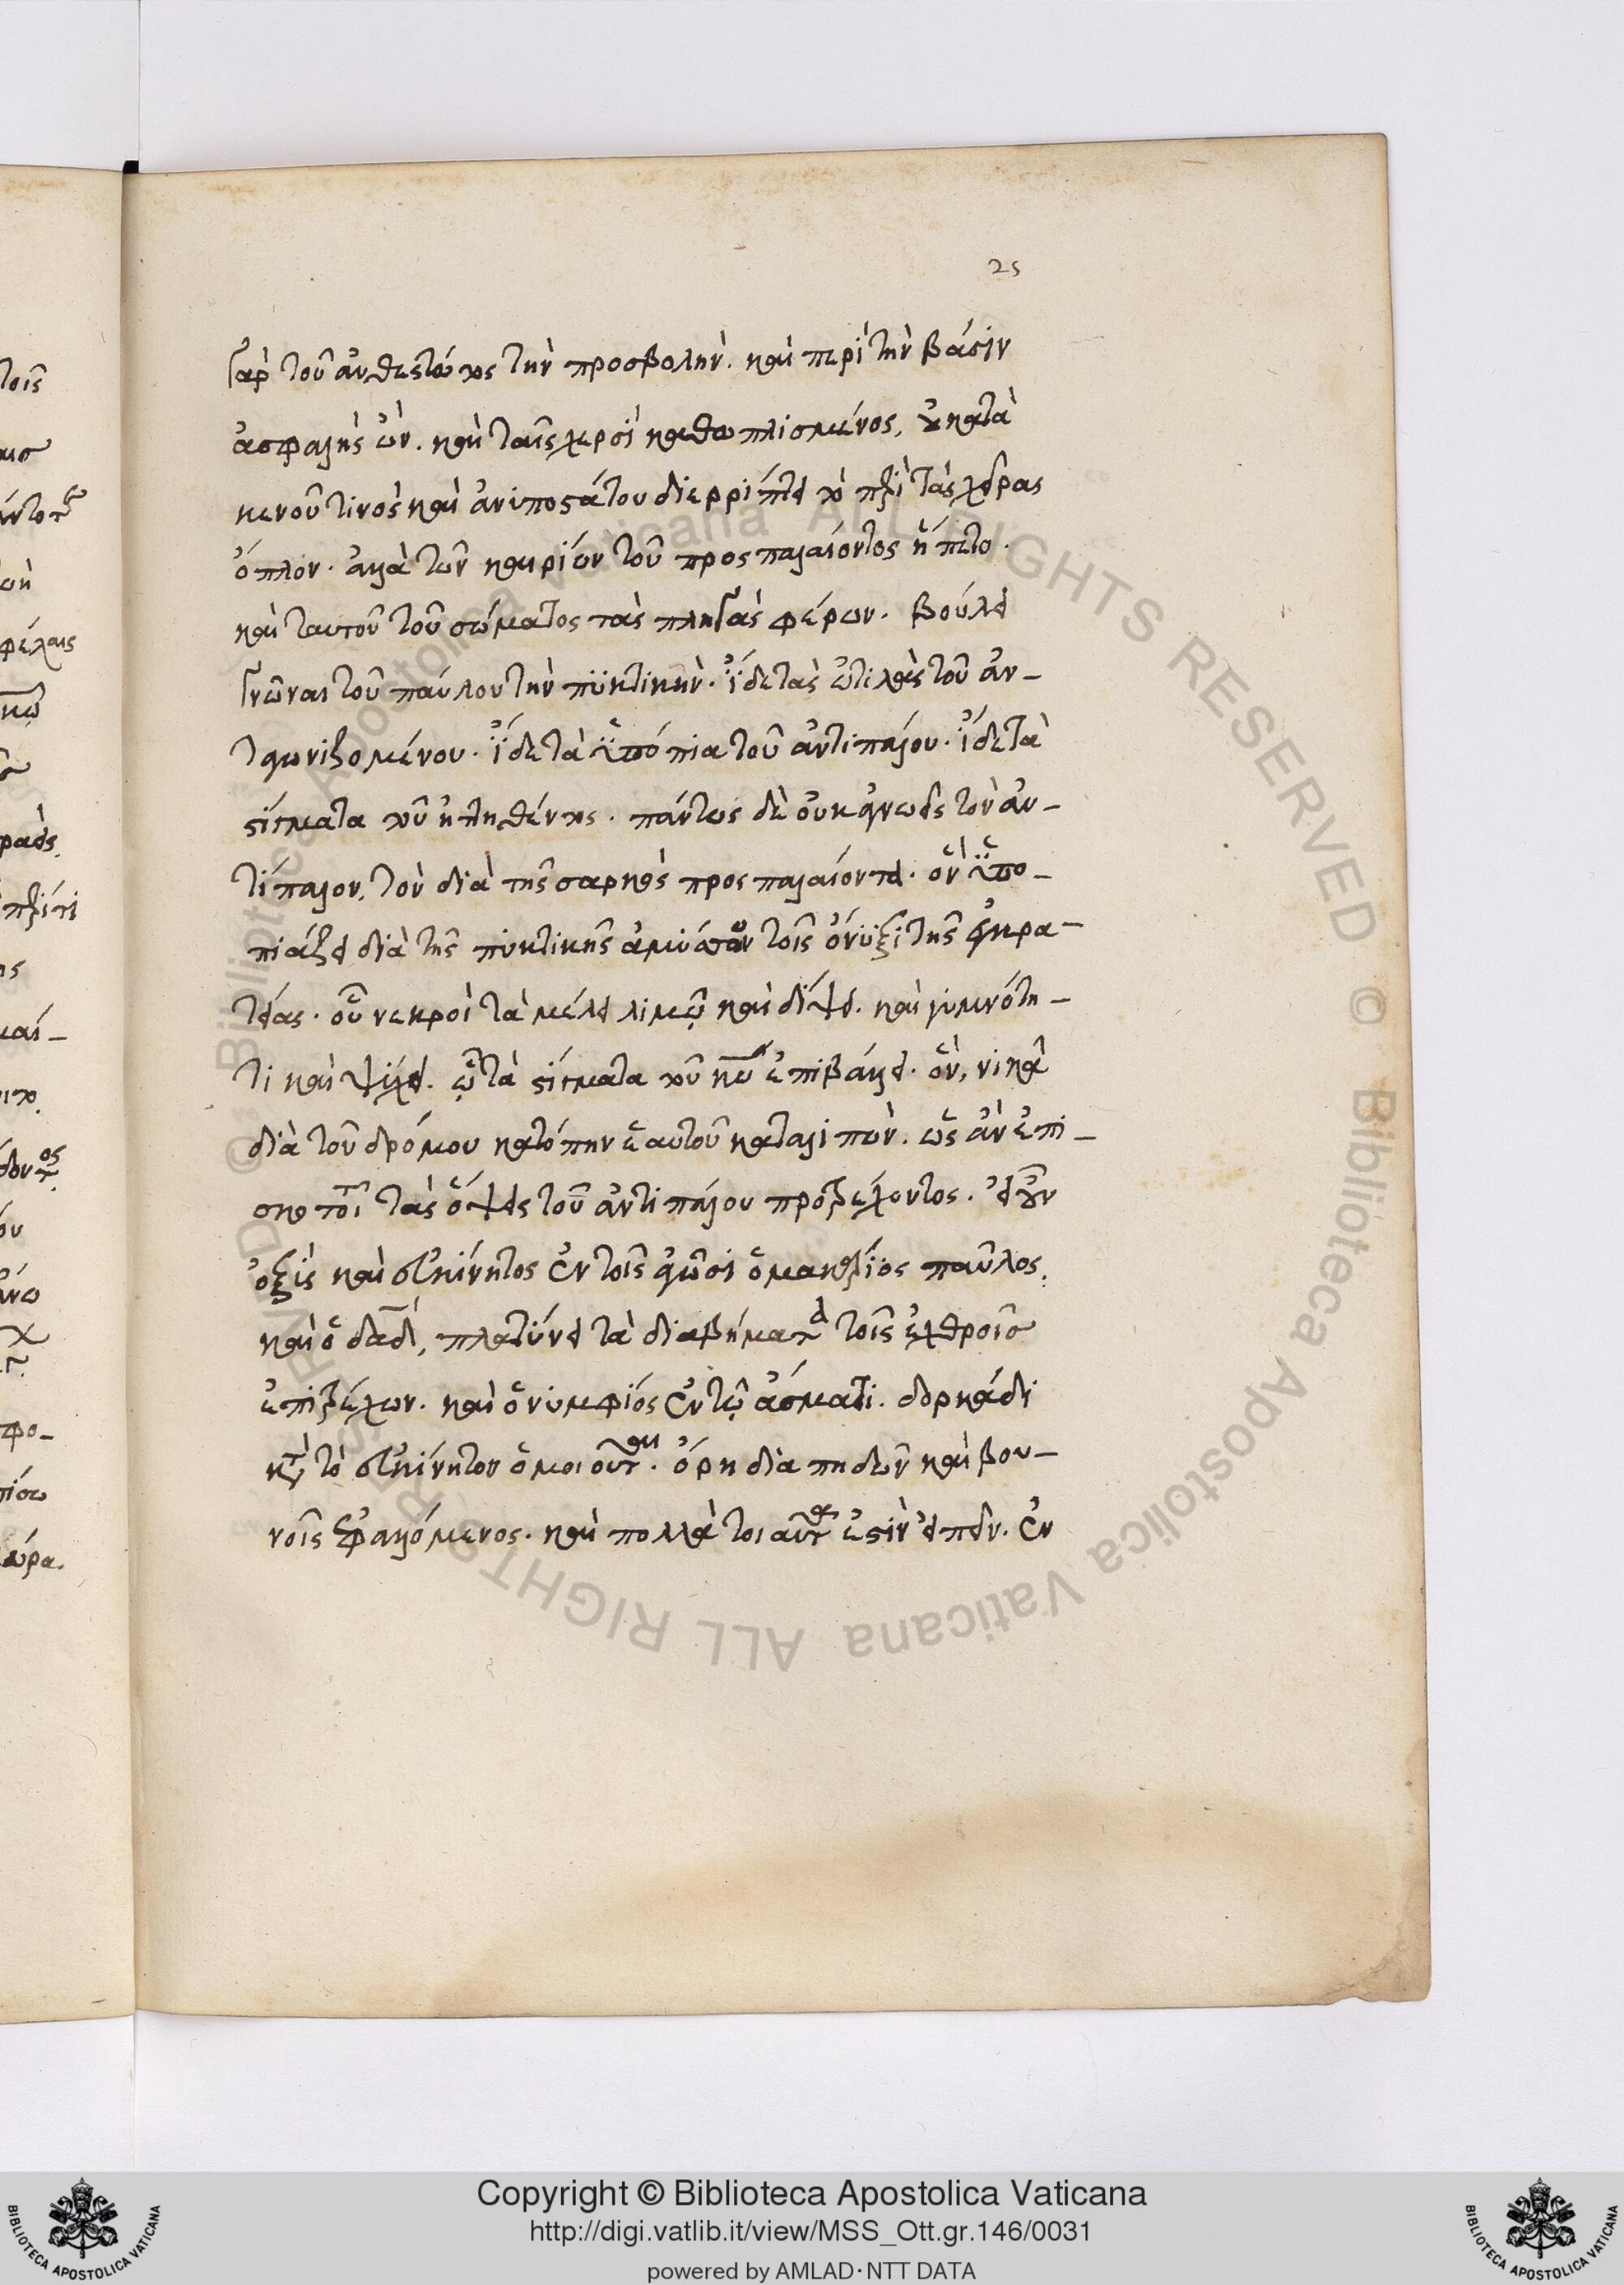 25
γὰρ τοῦ ἀνθεστῶτος τὴν προσβολήν. καὶ περὶ τὴν βάσιν
ἀσφαλὴς ὤν. καὶ ταῖς χερσὶ καθωπλισμένος, οὐ κατὰ
κενοῦ τινὸς καὶ ἀνυποστάτου διερρίπτει τὸ περὶ τὰς χεῖρας
ὅπλον. ἀλλὰ τῶν καιρίων τοῦ προσπαλαίοντος ἥπτετο.
καὶ ταυτοῦ τοῦ σώματος τὰς πληγὰς φέρων. βούλει
γνῶναι τοῦ παύλου τὴν πϋκτικήν. ἴδε τὰς ὠτιλὰς τοῦ ἀν-
ταγωνιζομένου. ἴδε τὰ ὑπόπια τοῦ ἀντιπάλου. ἴδε τὰ
στίγματα τοῦ ἡττηθέντος. πάντως δὲ οὐκ ἀγνοεῖς τὸν ἀν-
τίπαλον, τὸν διὰ τῆς σαρκὸς προσπαλαίοντα. ὃν ὑπο-
πιάζει διὰ τῆς πυκτικῆς ἀμύσσων τοῖς ὄνυξι τῆς ἐγκρα-
τείας. οὗ νεκροῖ τὰ μέλει λιμῷ καὶ δίψει. καὶ γυμνότη-
τι καὶ ψύχει. ᾧ τὰ στίγματα τοῦ κυ ἐπιβάλλει. ὃν, νικᾶ
διὰ τοῦ δρόμου κατόπην ἑαυτοῦ καταλιπών. ὡς ἂν ἐπι-
σκοτοῖ τὰς ὄψεις τοῦ ἀντιπάλου προτρέχοντος. εἰ οὖν
ὀξὺς καὶ εὐκίνητος ἐν τοῖς ἀγῶσι ὁ μακάριος παῦλος.
καὶ ὁ δαδ, πλατύνει τὰ διαβήματα τοῖς ἐχθροῖς
ἐπιτρέχων. καὶ ὁ νυμφίος ἐν τῷ ἄσματι. δορκάδι
κατὰ τὸ εὐκίνητον ὁμοιοῦται. ὄρη διαπηδῶν καὶ βου-
νοῖς ἐφαλλόμενος. καὶ πολλὰ τοιαῦτα ἐστὶν εἰπεῖν. ἐν
© Biblioteca Apostolica Vaticana ALL RIGHTS RESERVED © Biblioteca Apostolica Vaticana ALL RIGHTS RESERVED
Copyright © Biblioteca Apostolica Vaticana
http://digi.vatlib.it/view/MSS_Ott.gr.146/0031
powered by AMLAD·NTT DATA
BIBLIOTECA APOSTOLICA VATICANA
BIBLIOTECA APOSTOLICA VATICANA